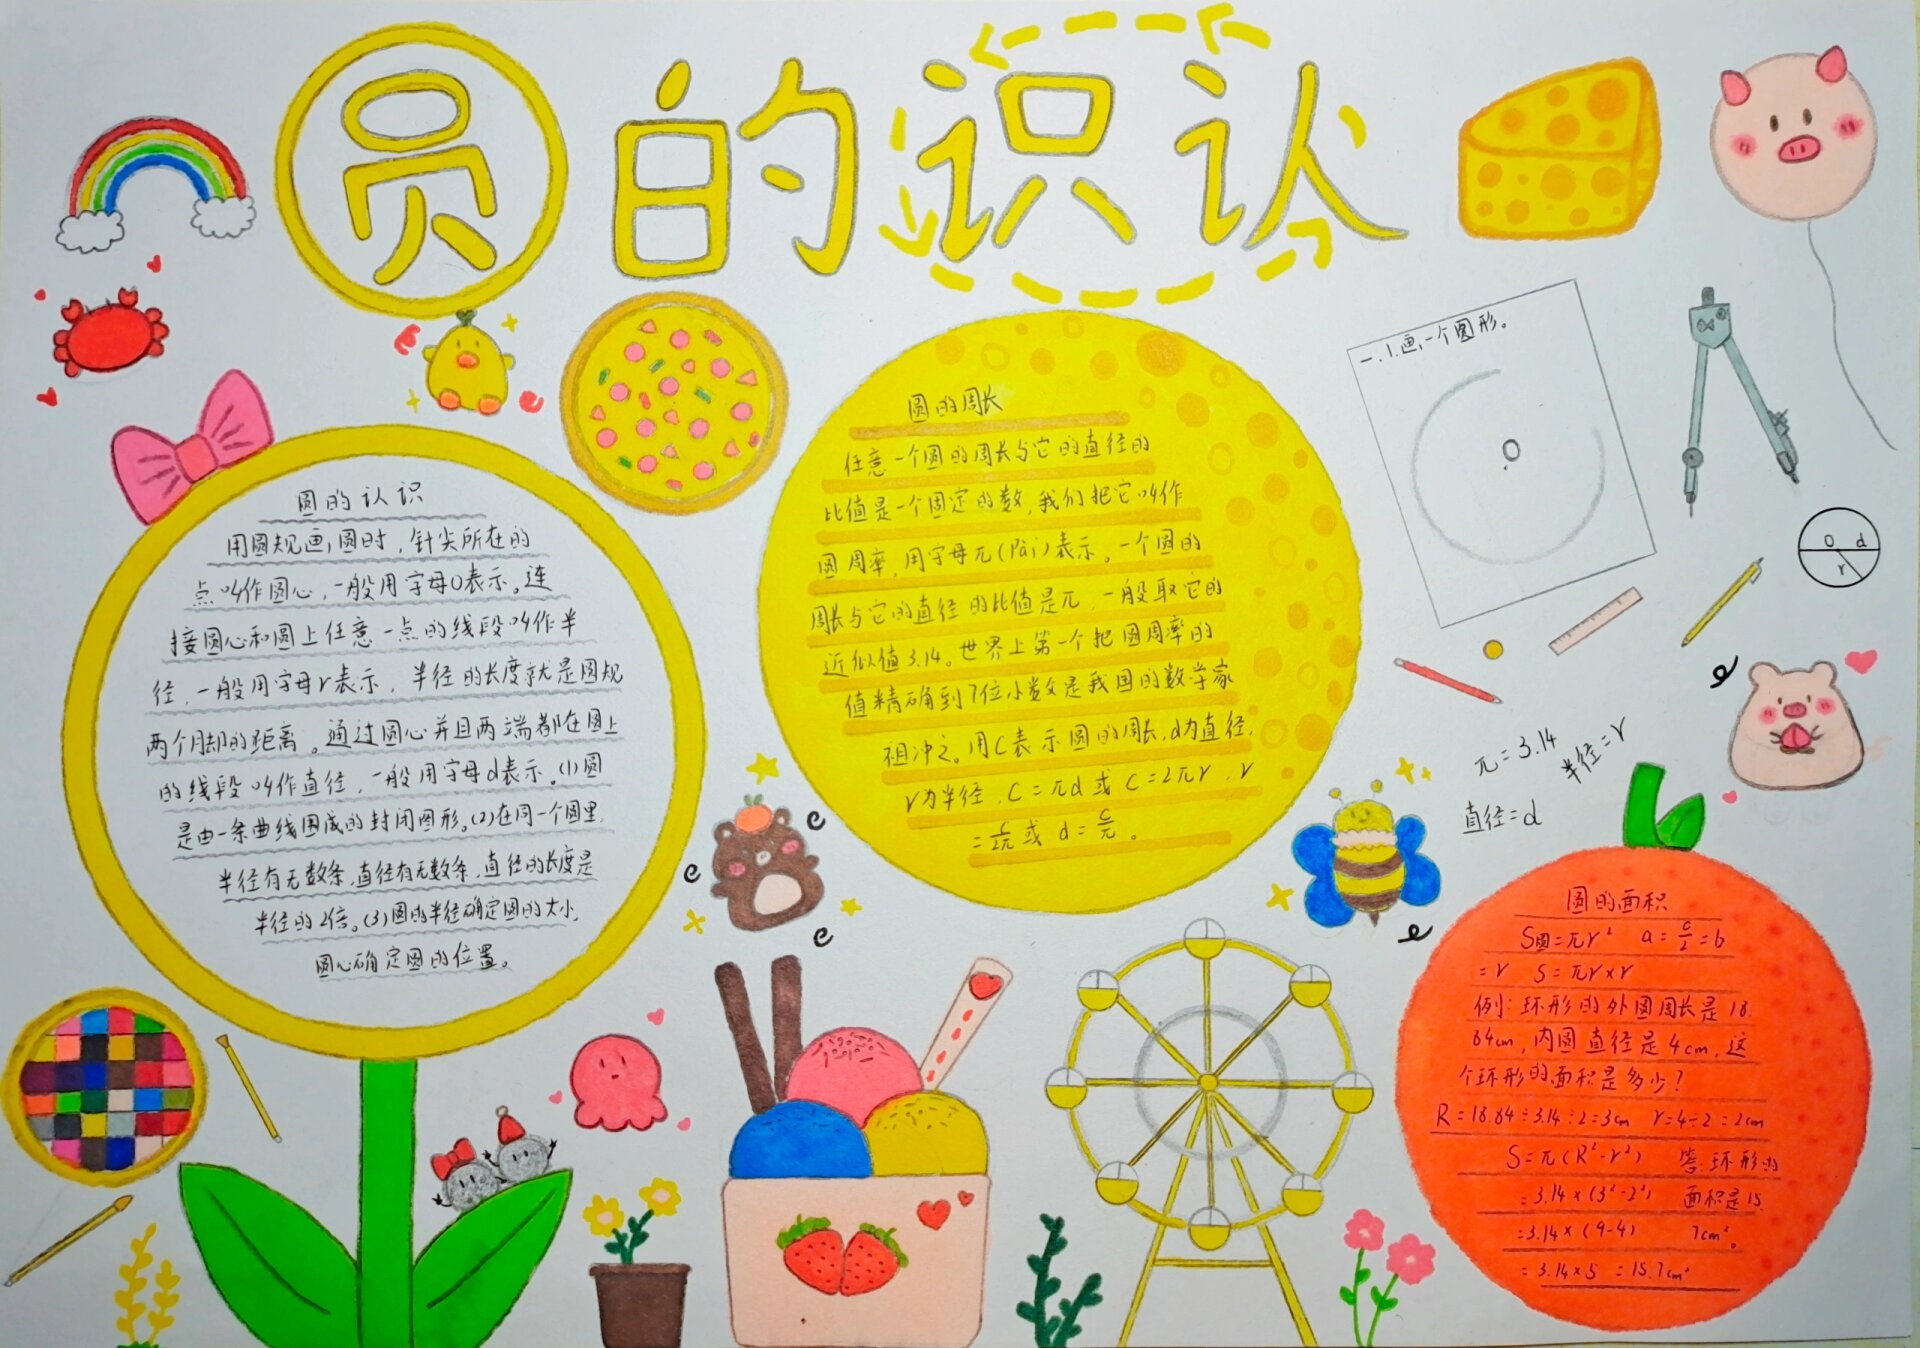 圆的识认
圆的认识
用圆规画圆时，针尖所在的
点叫作圆心，一般用字母O表示。连
接圆心和圆上任意一点的线段叫作半
径，一般用字母r表示，半径的长度就是圆规
两个脚的距离。通过圆心并且两端都在圆上
的线段叫作直径，一般用字母d表示。(1)圆
是由一条曲线围成的封闭图形。(2)在同一个圆里，
半径有无数条，直径有无数条，直径的长度是
半径的2倍。(3)圆的半径确定圆的大小，
圆心确定圆的位置。
圆的周长
任意一个圆的周长与它的直径的
比值是一个固定的数，我们把它叫作
圆周率，用字母π(Pài)表示。一个圆的
周长与它的直径的比值是π，一般取它的
近似值3.14。世界上第一个把圆周率的
值精确到7位小数是我国的数学家
祖冲之。用C表示圆的周长，d为直径，
r为半径，C=πd或C=2πr，r
=C/2π或 d=C/π。
一.1.画一个圆形。
O
O d
r
π=3.14
半径=r
直径=d
圆的面积
S圆=πr² a=C/2=b
=r S=πr×r
例：环形的外圆周长是18.
84cm，内圆直径是4cm，这
个环形的面积是多少？
R=18.84÷3.14÷2=3cm r=4÷2=2cm
S=π(R²-r²) 答：环形的
=3.14×(3²-2²) 面积是15.
=3.14×(9-4) 7cm²。
=3.14×5 =15.7cm²